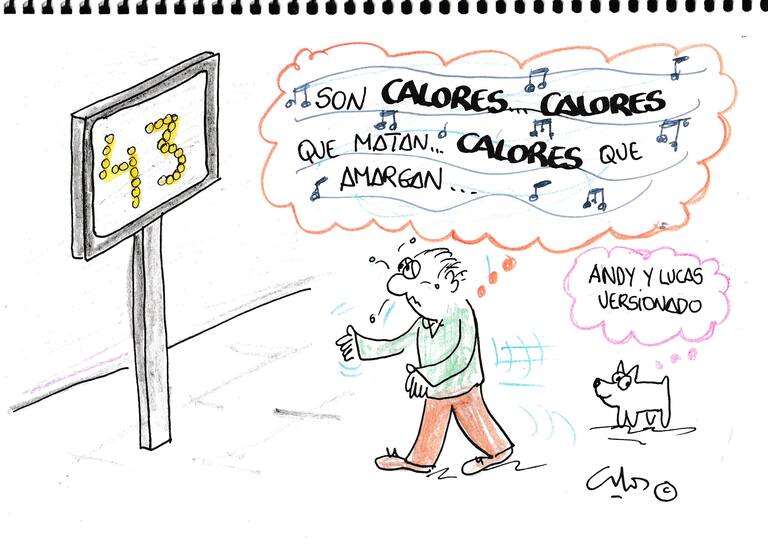 43
SON CALORES... CALORES
QUE MATAN... CALORES QUE
AMARGAN...
ANDY Y LUCAS
VERSIONADO
Calos ©